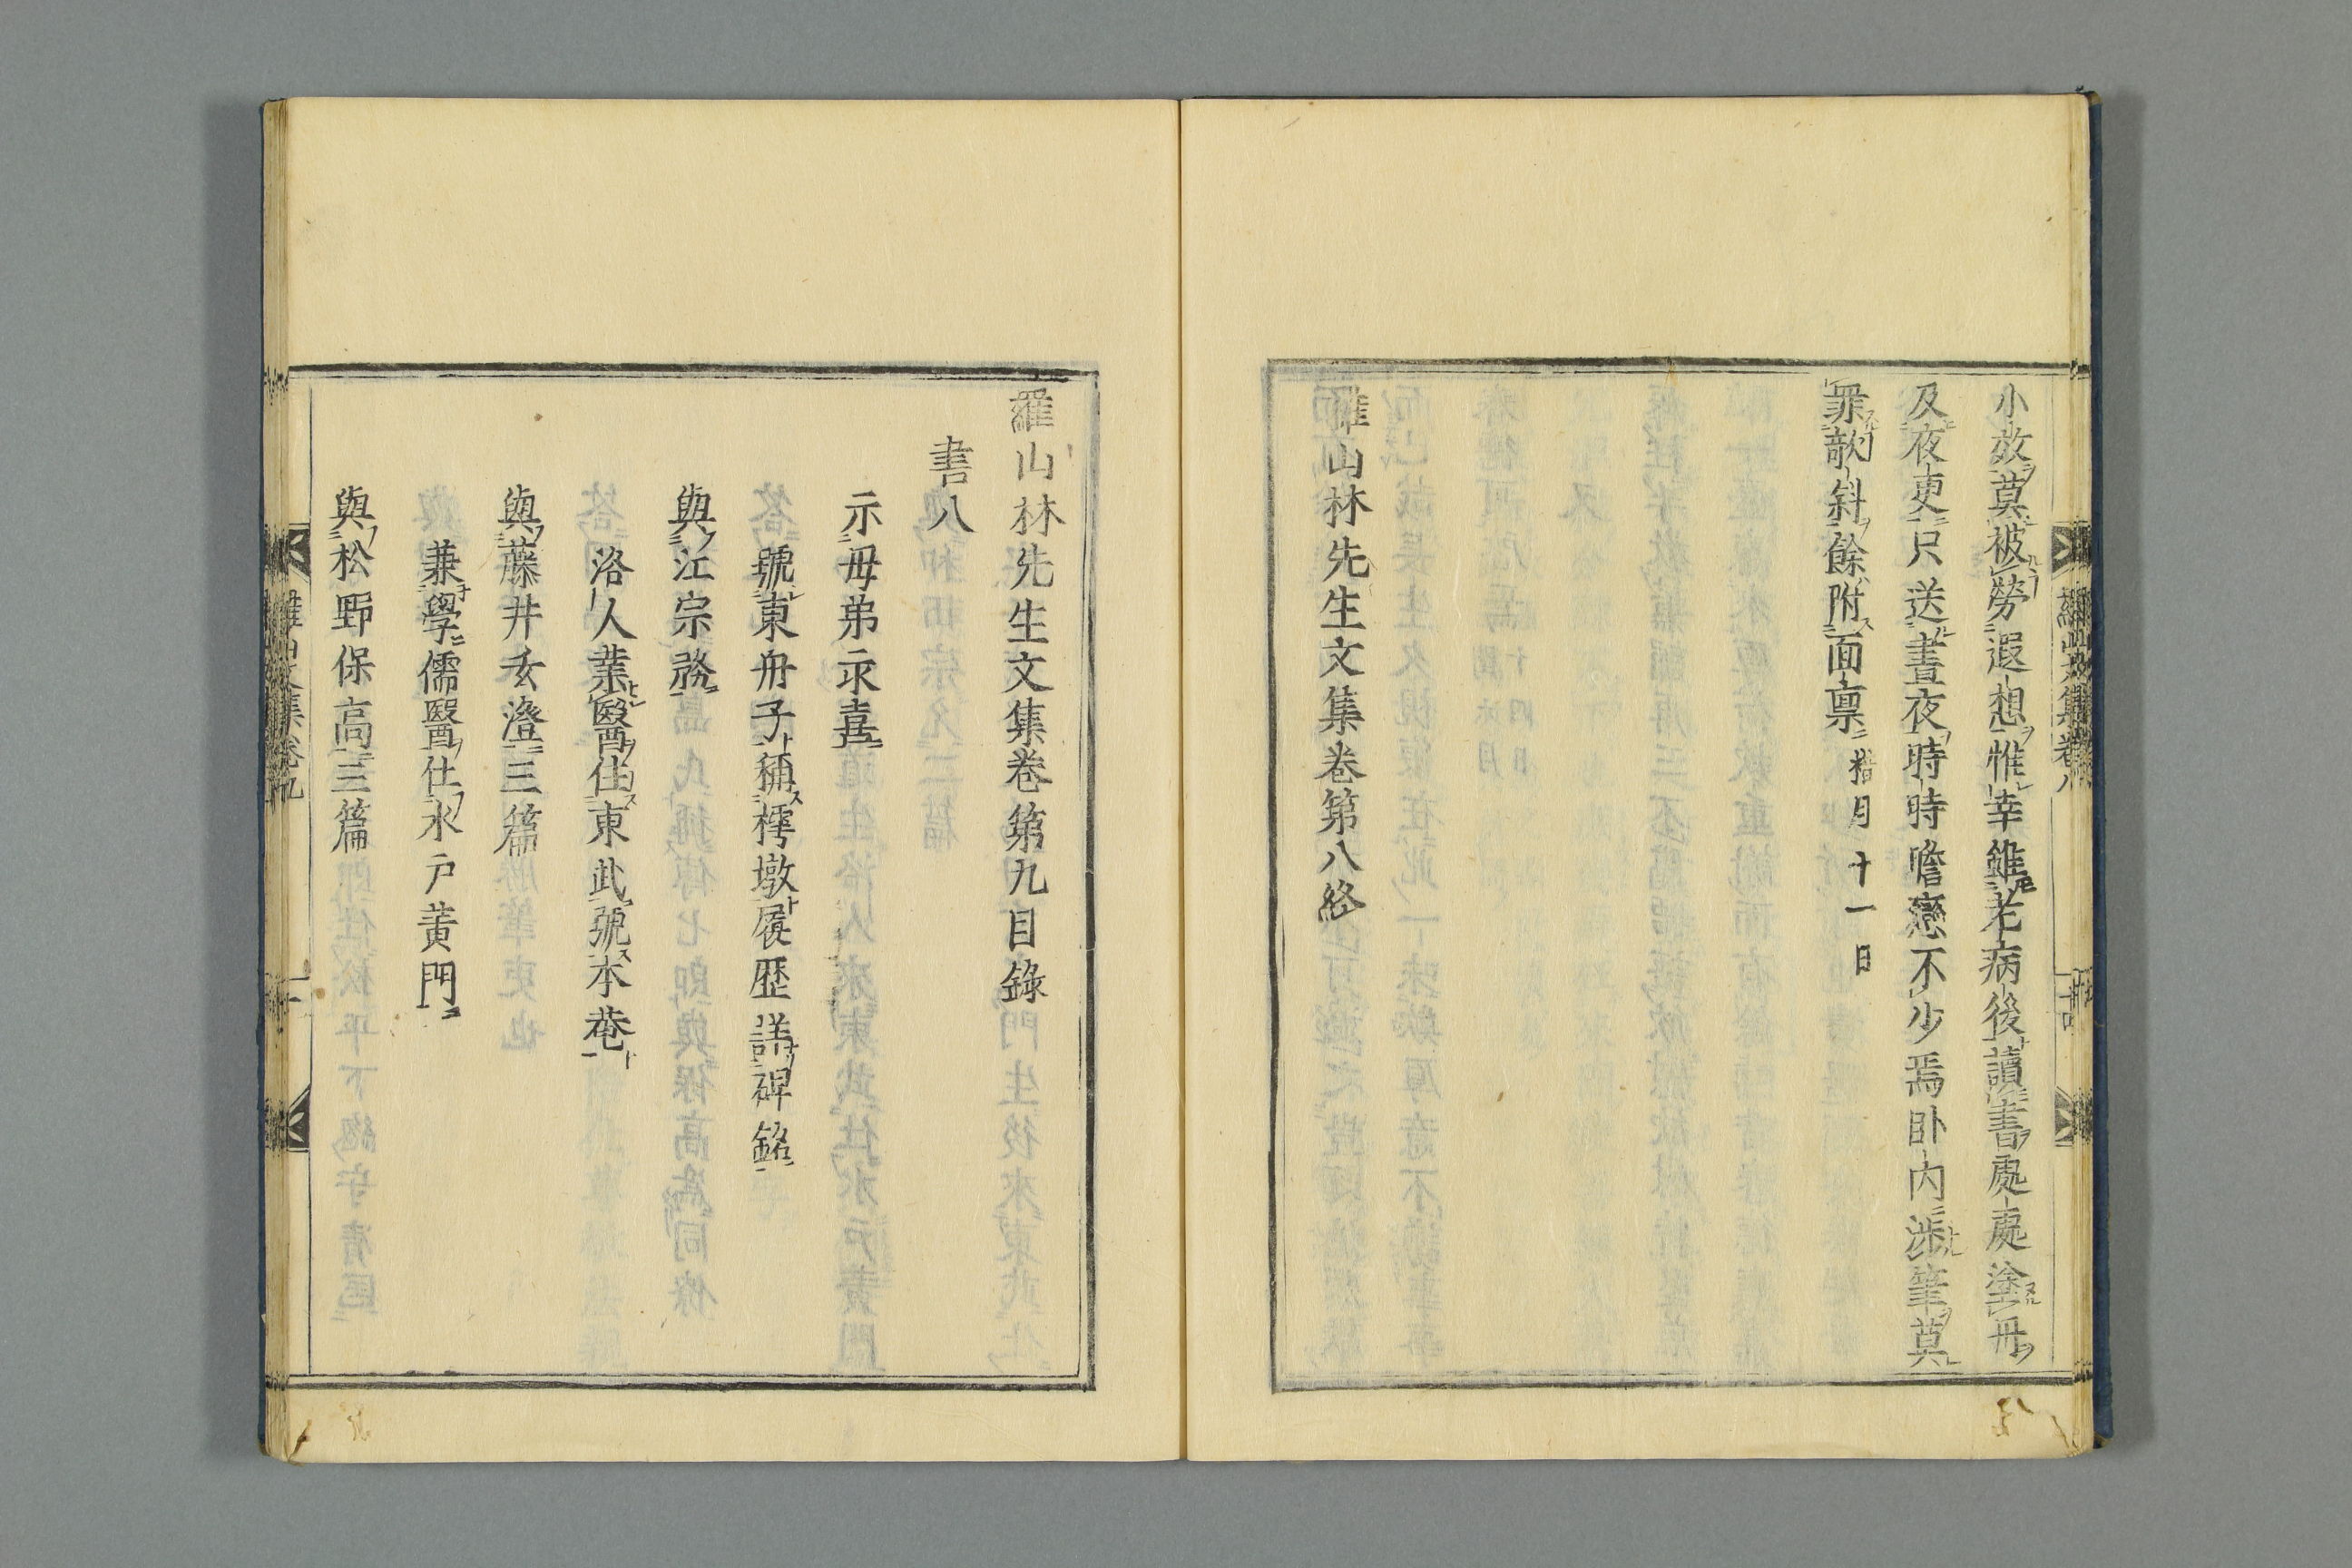 小效莫被勞遐想惟幸雖老病後讀書處處塗毋
及夜吏只送晝夜時時瞻戀不少焉卧内涉筆莫
罪歆斜餘附面稟 臘月十一日
羅山林先生文集卷第八終
羅山林先生文集卷第九目錄
書八
示毋弟永喜
號東舟子稱樗墩履歷詳碑銘
與江宗務
洛人業醫住東武號本菴
與藤井玄澄三篇
兼學儒醫仕水戶黄門
與松野保高三篇
羅山文集卷九